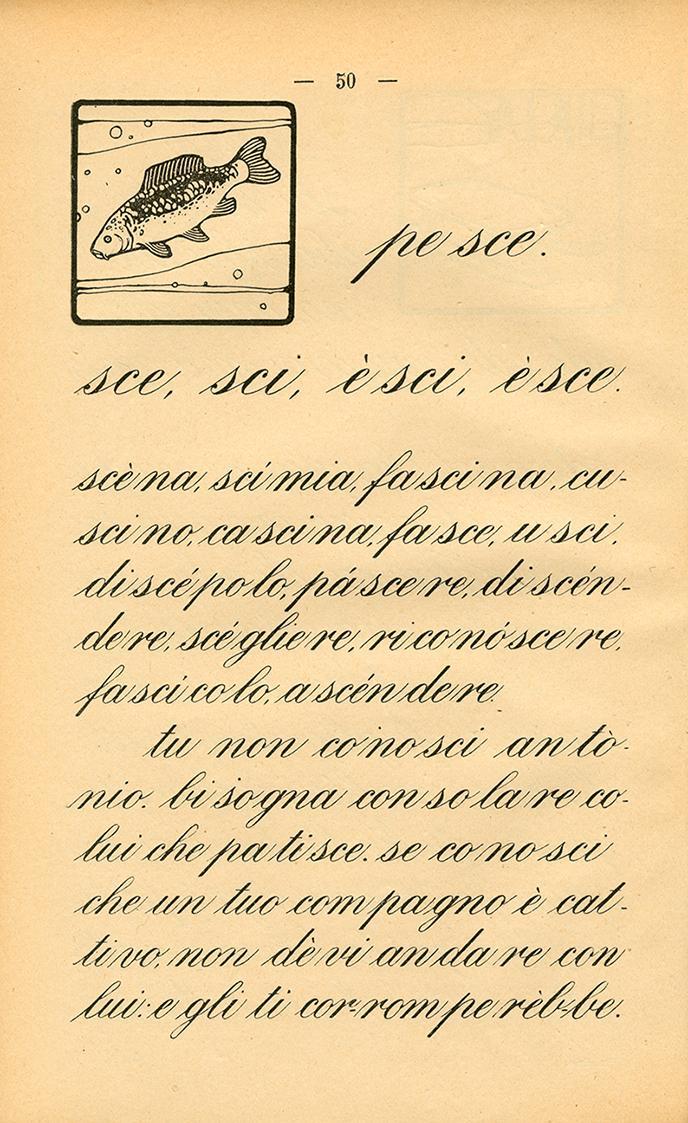 — 50 —
pe sce.
sce, sci, è sci, è sce.
scè na, sci mia, fa sci na, cu-
sci no, ca sci na, fa sce, u sci,
di scé po lo, pá sce re, di scén-
de re, scé glie re, ri co nó sce re,
fa sci co lo, a scén de re.
tu non co no sci an tò-
nio. bi so gna con so la re co-
lui che pa ti sce. se co no sci
che un tuo com pa gno è cat-
ti vo, non dè vi an da re con
lui: e gli ti cor-rom pe rèb-be.